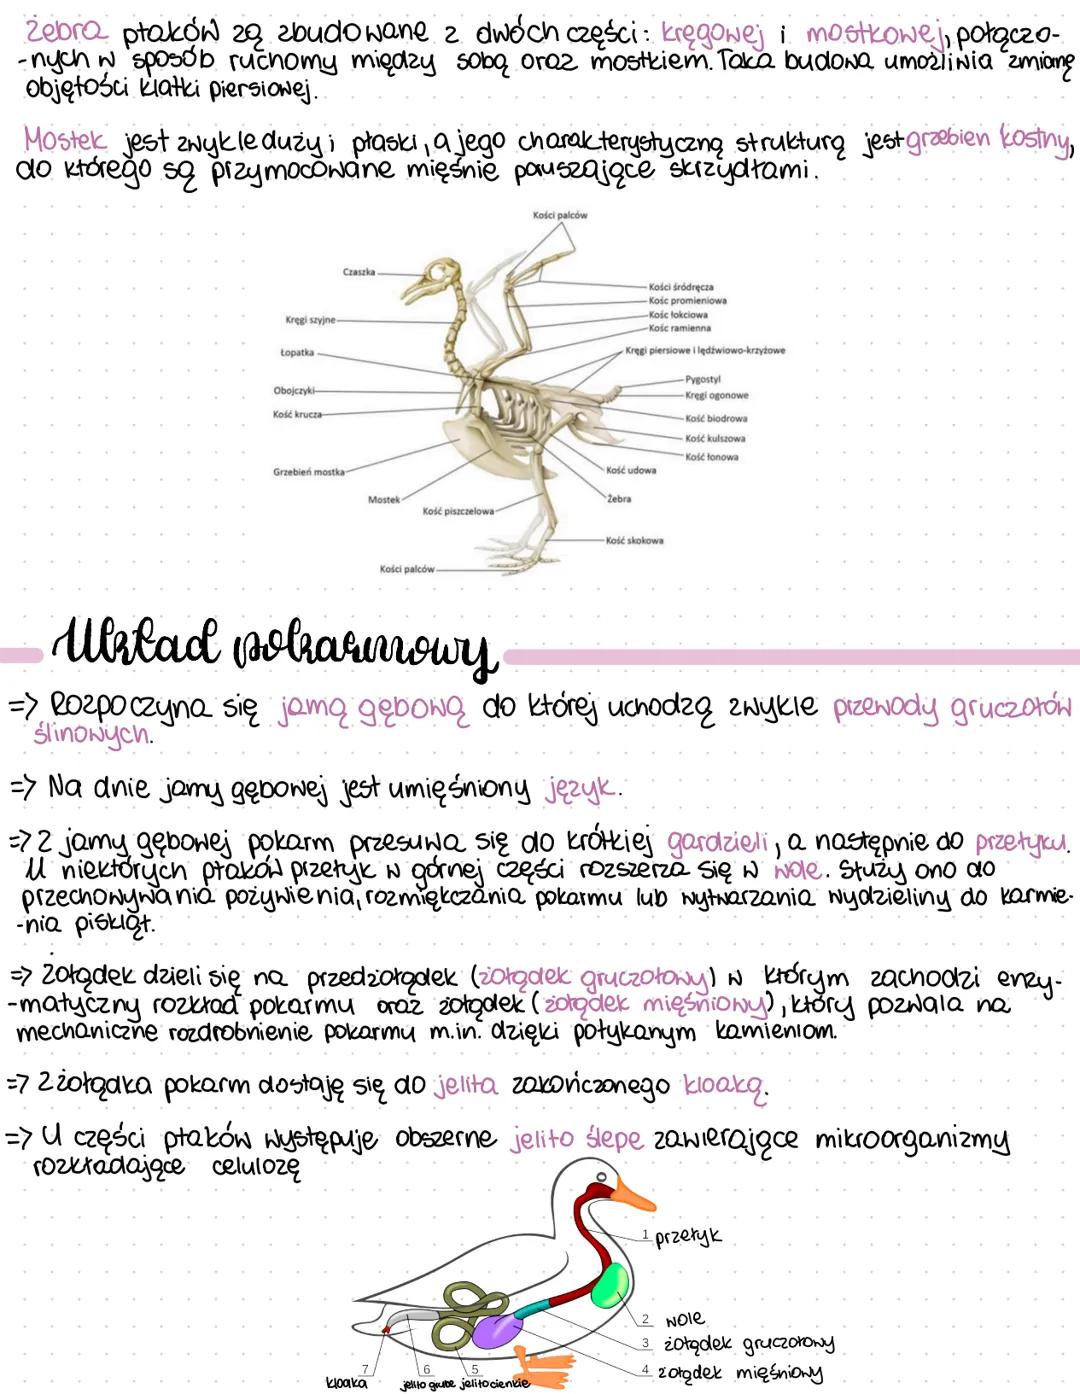 Żebra ptaków zą zbudowane z dwóch części: kręgowej i mostkowej, połączo-
-nych w sposób ruchomy między sobą oraz mostkiem. Taka budowa umożliwia zmianę
objętości klatki piersiowej.
Mostek jest zwykle duży i płaski, a jego charakterystyczną strukturą jest grzebien kostny,
do którego są przymocowane mięśnie pouszające skrzydłami.
Kości palców
Czaszka
Kości śródręcza
Kośc promieniowa
Kośc łokciowa
Kośc ramienna
Kręgi szyjne
Kręgi piersiowe i lędźwiowo-krzyżowe
Łopatka
Pygostyl
Kręgi ogonowe
Obojczyki
Kość krucza
Kość biodrowa
Kość kulszowa
Kość łonowa
Grzebień mostka
Kość udowa
Mostek
Żebra
Kość piszczelowa
Kość skokowa
Kości palców
Układ pokarmowy
=> Rozpoczyna się jamą gębową do której uchodzą zwykle przewody gruczołów
ślinowych.
=> Na dnie jamy gębowej jest umięśniony język.
=> Z jamy gębowej pokarm przesuwa się do krótkiej gardzieli, a następnie do przełyku.
U niektórych ptaków przełyk w górnej części rozszerza się w wole. Służy ono do
przechowywania pożywienia, rozmiękczania pokarmu lub wytwarzania wydzieliny do karmie-
-nia piskląt.
=> Żołądek dzieli się na przedżołądek (żołądek gruczołowy) w którym zachodzi enzy-
-matyczny rozkład pokarmu oraz żołądek (żołądek mięśniowy), który pozwala na
mechaniczne rozdrobnienie pokarmu m.in. dzięki połykanym kamieniom.
=> Z żołądka pokarm dostaję się do jelita zakończonego kloaką.
=> U części ptaków występuje obszerne jelito ślepe zawierające mikroorganizmy
rozkładające celulozę
1 przełyk
2 wole
3 żołądek gruczołowy
4 żołądek mięśniowy
7 6 5
kloaka jelito grube jelito cienkie